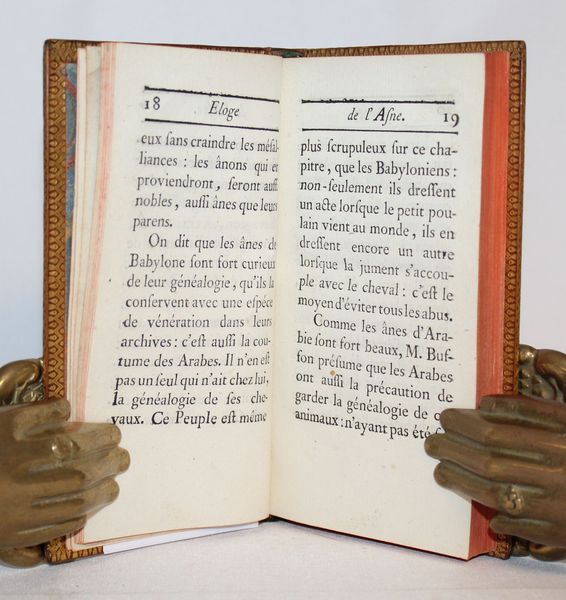 18 Eloge
eux sans craindre les mésal-
liances : les ânons qui en
proviendront, seront aussi
nobles, aussi ânes que leurs
parens.
On dit que les ânes de
Babylone sont fort curieux
de leur généalogie, qu'ils la
conservent avec une espéce
de vénération dans leurs
archives : c'est aussi la cou-
tume des Arabes. Il n'en est
pas un seul qui n'ait chez lui,
la généalogie de ses che-
vaux. Ce Peuple est même
de l'Asne. 19
plus scrupuleux sur ce cha-
pitre, que les Babyloniens :
non-seulement ils dressent
un acte lorsque le petit pou-
lain vient au monde, ils en
dressent encore un autre
lorsque la jument s'accou-
ple avec le cheval : c'est le
moyen d'éviter tous les abus.
Comme les ânes d'Ara-
bie sont fort beaux, M. Buf-
fon présume que les Arabes
ont aussi la précaution de
garder la généalogie de
animaux : n'ayant pas été